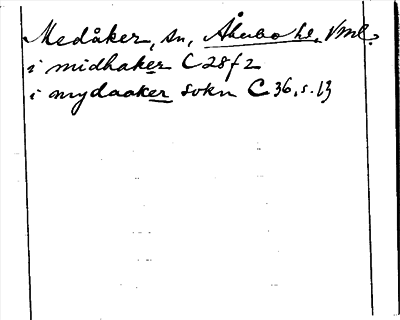 Medåker, sn, Åkerbo hd. Vml.
i midhaker C 28 f 2
i mydaaker sokn C 36, s. 13